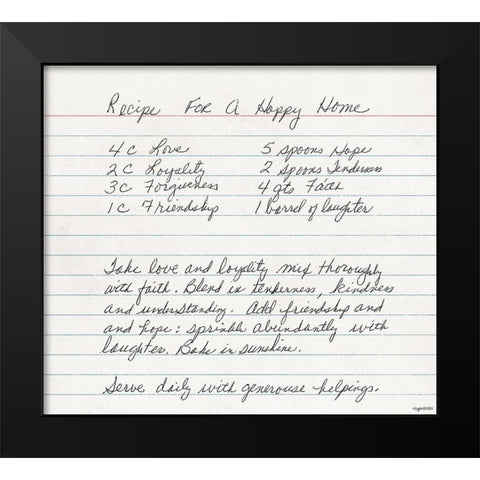 Recipe For A Happy Home
4 c Love 5 spoons Hope
2 c Loyality 2 spoons Tenderness
3 c Forgiveness 4 gt Faith
1 c Friendship 1 barrel of laughter
Take love and loyality mix thoroughly
with faith. Blend in tenderness, kindness
and understanding. Add friendship and
and hope: sprinkle abundantly with
laughter. Bake in sunshine.
Serve daily with generouse helpings.